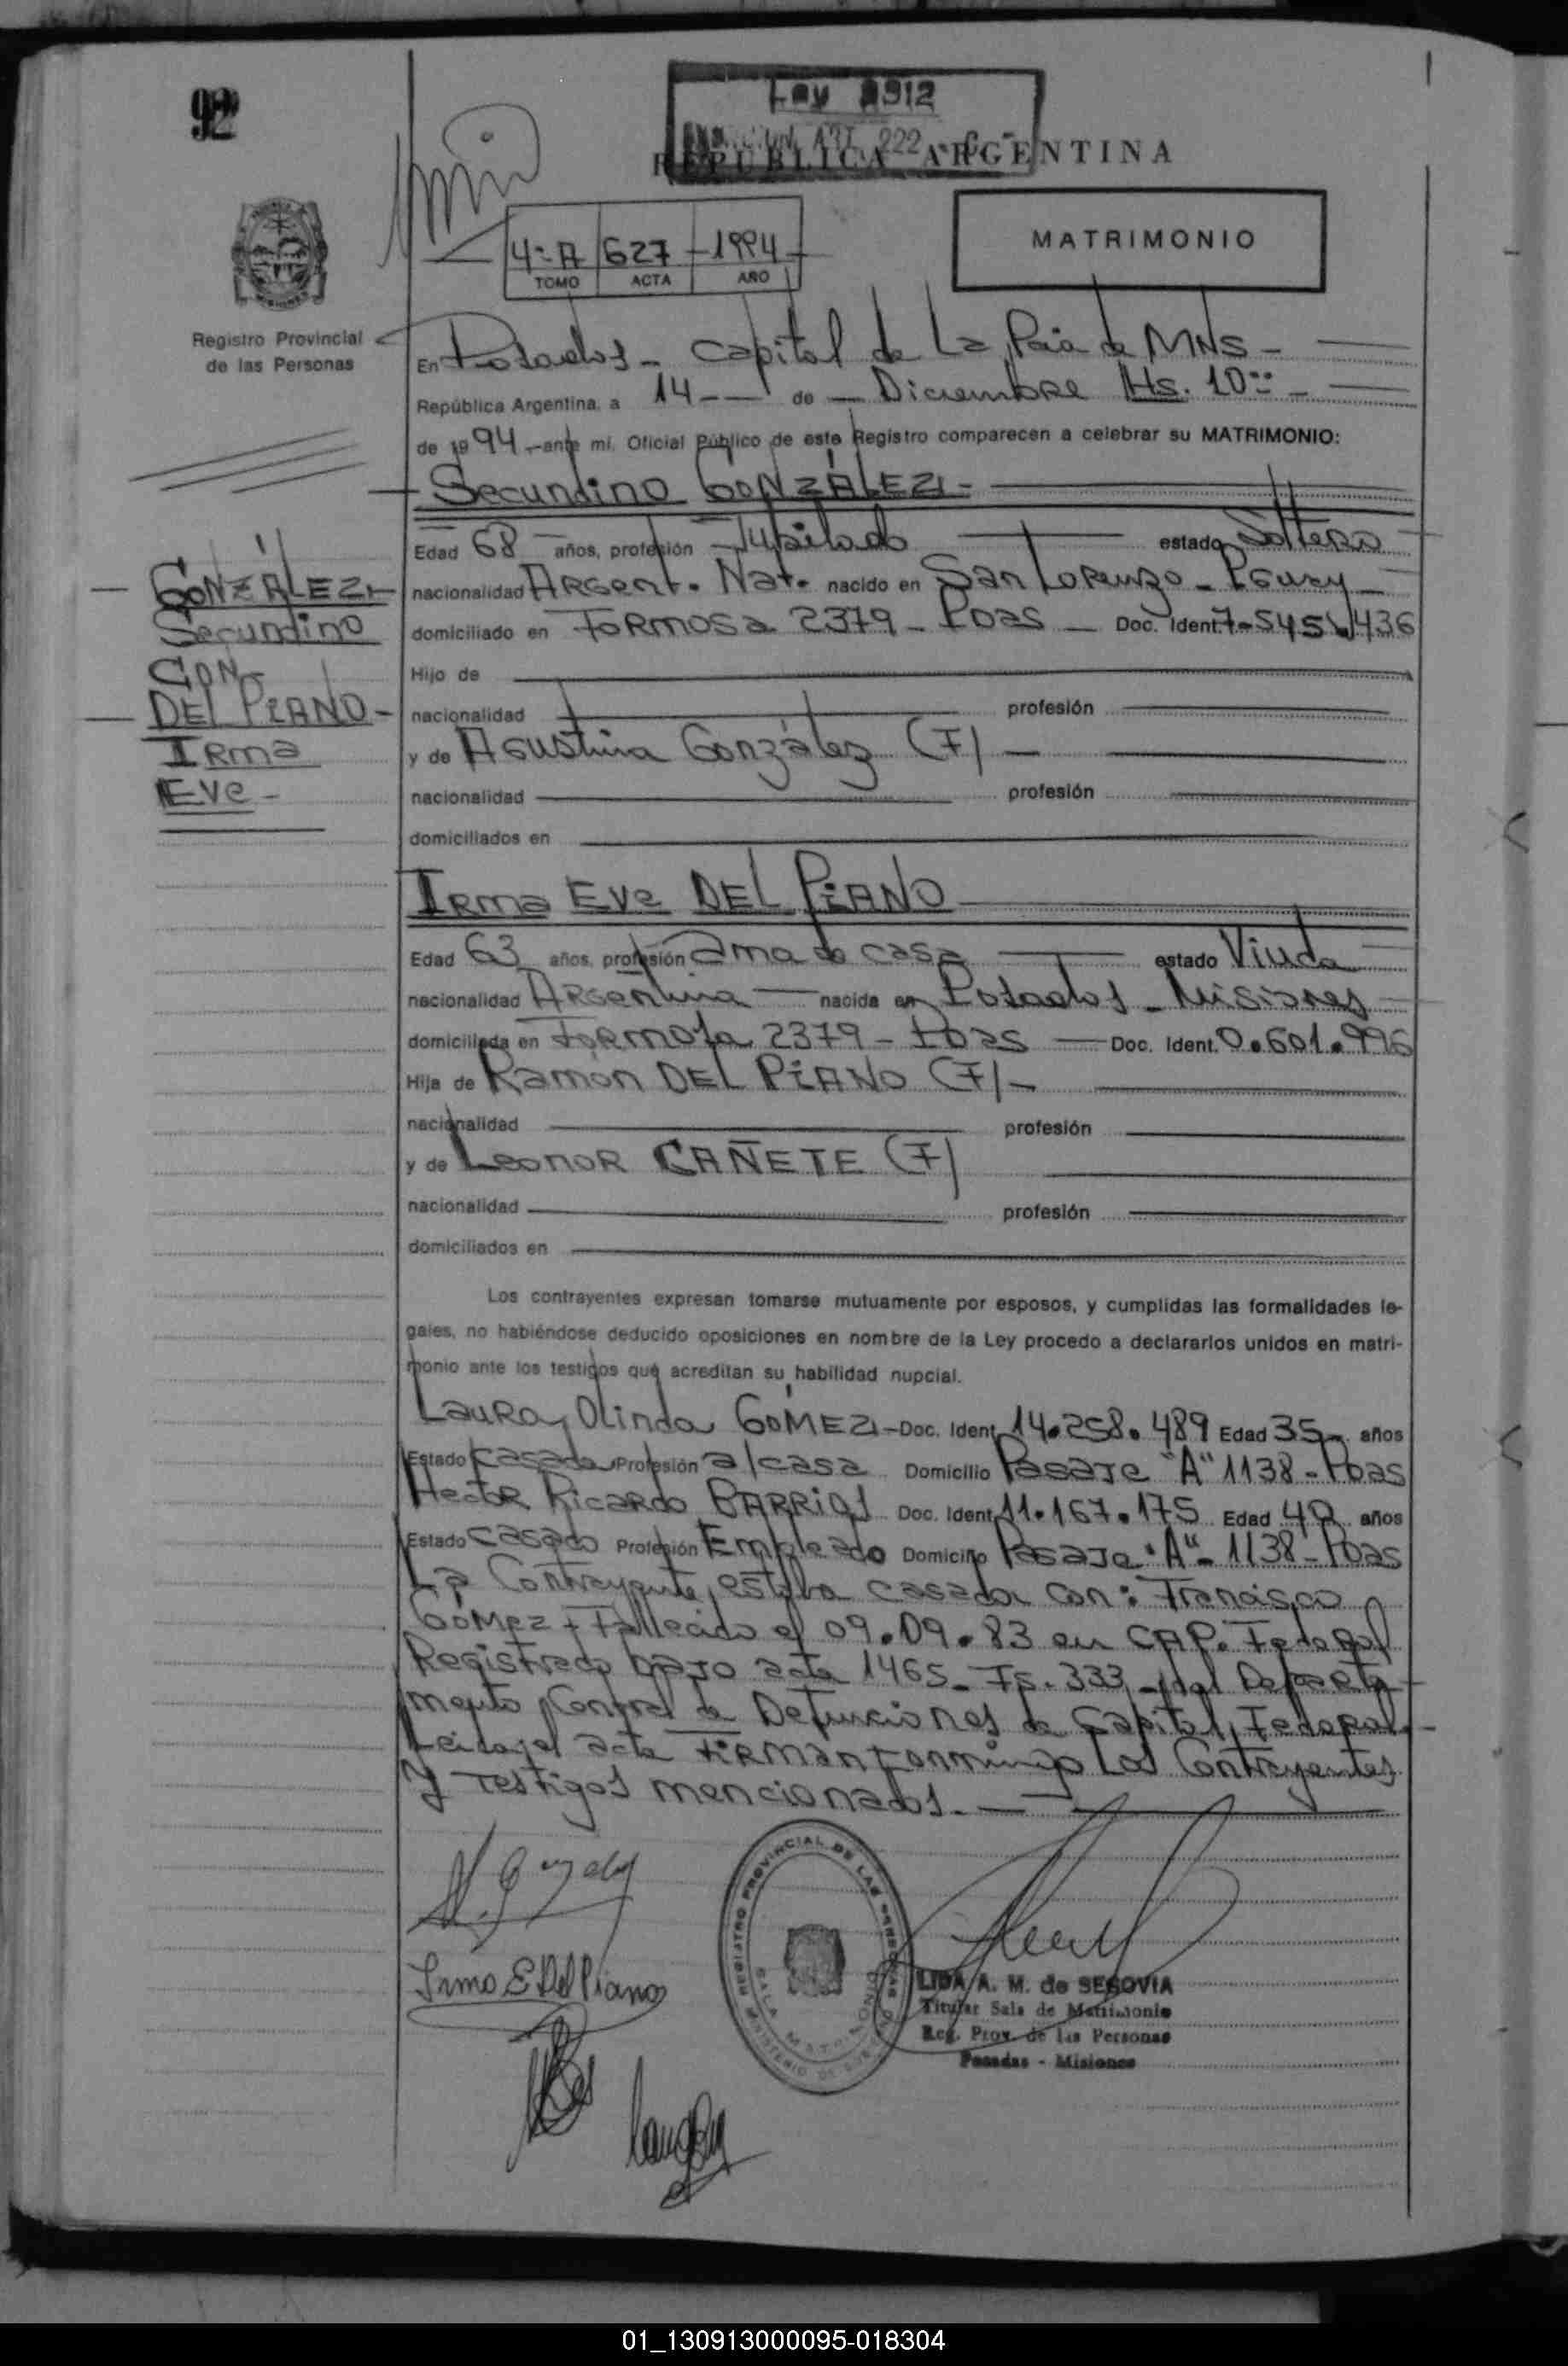 92
Ley 2312
ART. 222
REPUBLICA ARGENTINA
4º A 627 - 1994 -
TOMO ACTA AÑO
MATRIMONIO
Registro Provincial
de las Personas
En Posadas - Capital de La Pcia de MNS -
República Argentina, a 14 -- de - Diciembre Hs. 10 -
de 1994 - ante mí, Oficial Público de este Registro comparecen a celebrar su MATRIMONIO:
Secundino GONZÁLEZ -
Edad 68 años, profesión Jubilado estado Soltero
nacionalidad Argent. Nat. nacido en San Lorenzo - Pguay -
domiciliado en Formosa 2379 - Pdas - Doc. Ident. 7.545.436
Hijo de
nacionalidad profesión
y de Agustina González (F) -
nacionalidad profesión
domiciliados en
GONZÁLEZ
Secundino
CON -
DEL PIANO -
Irma
Eve -
Irma Eve DEL PIANO
Edad 63 años, profesión ama de casa estado Viuda
nacionalidad Argentina - nacida en Posadas - Misiones
domiciliada en Formosa 2379 - Pdas - Doc. Ident. 0.601.996
Hija de Ramon DEL PIANO (F) -
nacionalidad profesión
y de Leonor CAÑETE (F)
nacionalidad profesión
domiciliados en
Los contrayentes expresan tomarse mutuamente por esposos, y cumplidas las formalidades le-
gales, no habiéndose deducido oposiciones en nombre de la Ley procedo a declararlos unidos en matri-
monio ante los testigos que acreditan su habilidad nupcial.
Laura Olinda GÓMEZ - Doc. Ident. 14.258.489 Edad 35 - años
Estado Casada Profesión a/casa Domicilio Pasaje "A" 1138 - Pdas
Hector Ricardo BARRIOS Doc. Ident. 11.167.175 Edad 40 años
Estado Casado Profesión Empleado Domicilio Pasaje "A" - 1138 - Pdas
La Contrayente, estaba casada con: Francisco
Gómez - Fallecido el 09.09.83 en CAP. Federal
Registrado bajo acta 1465 - Fs. 333 - del Departa-
mento Central de Defunciones de Capital Federal.
Leida el acta Firman conmigo Los Contrayentes
y Testigos mencionados. -
Irma E Del Piano
REGISTRO PROVINCIAL DE LAS PERSONAS
SALA MATRIMONIO
LIDA A. M. de SEGOVIA
Titular Sala de Matrimonio
Reg. Prov. de las Personas
Posadas - Misiones
01_130913000095-018304